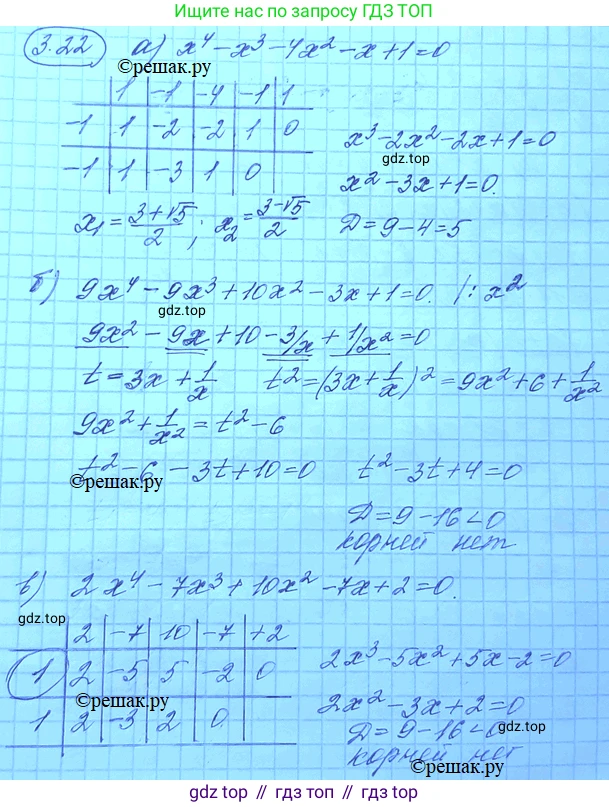 Ищите нас по запросу ГДЗ ТОП
3.22 а) x⁴ - x³ - 4x² - x + 1 = 0
©решак.ру
1 | -1 | -4 | -1 | 1
-1 | 1 | -2 | -2 | 1 | 0
x³ - 2x² - 2x + 1 = 0
gdz.top
-1 | 1 | -3 | 1 | 0
x² - 3x + 1 = 0.
x₁ = (3+√5)/2 ; x₂ = (3-√5)/2 D = 9 - 4 = 5
gdz.top
б) 9x⁴ - 9x³ + 10x² - 3x + 1 = 0. /: x²
9x² - 9x + 10 - 3/x + 1/x² = 0
gdz.top
t = 3x + 1/x t² = (3x + 1/x)² = 9x² + 6 + 1/x²
9x² + 1/x² = t² - 6
t² - 6 - 3t + 10 = 0 t² - 3t + 4 = 0
©решак.ру
gdz.top
D = 9 - 16 < 0
корней нет
в) 2x⁴ - 7x³ + 10x² - 7x + 2 = 0.
gdz.top
2 | -7 | 10 | -7 | +2
1 | 2 | -5 | 5 | -2 | 0
2x³ - 5x² + 5x - 2 = 0
©решак.ру
1 | 2 | -3 | 2 | 0
2x² - 3x + 2 = 0
gdz.top
D = 9 - 16 < 0
корней нет
©решак.ру
gdz.top // гдз.топ // gdz.top // гдз.топ